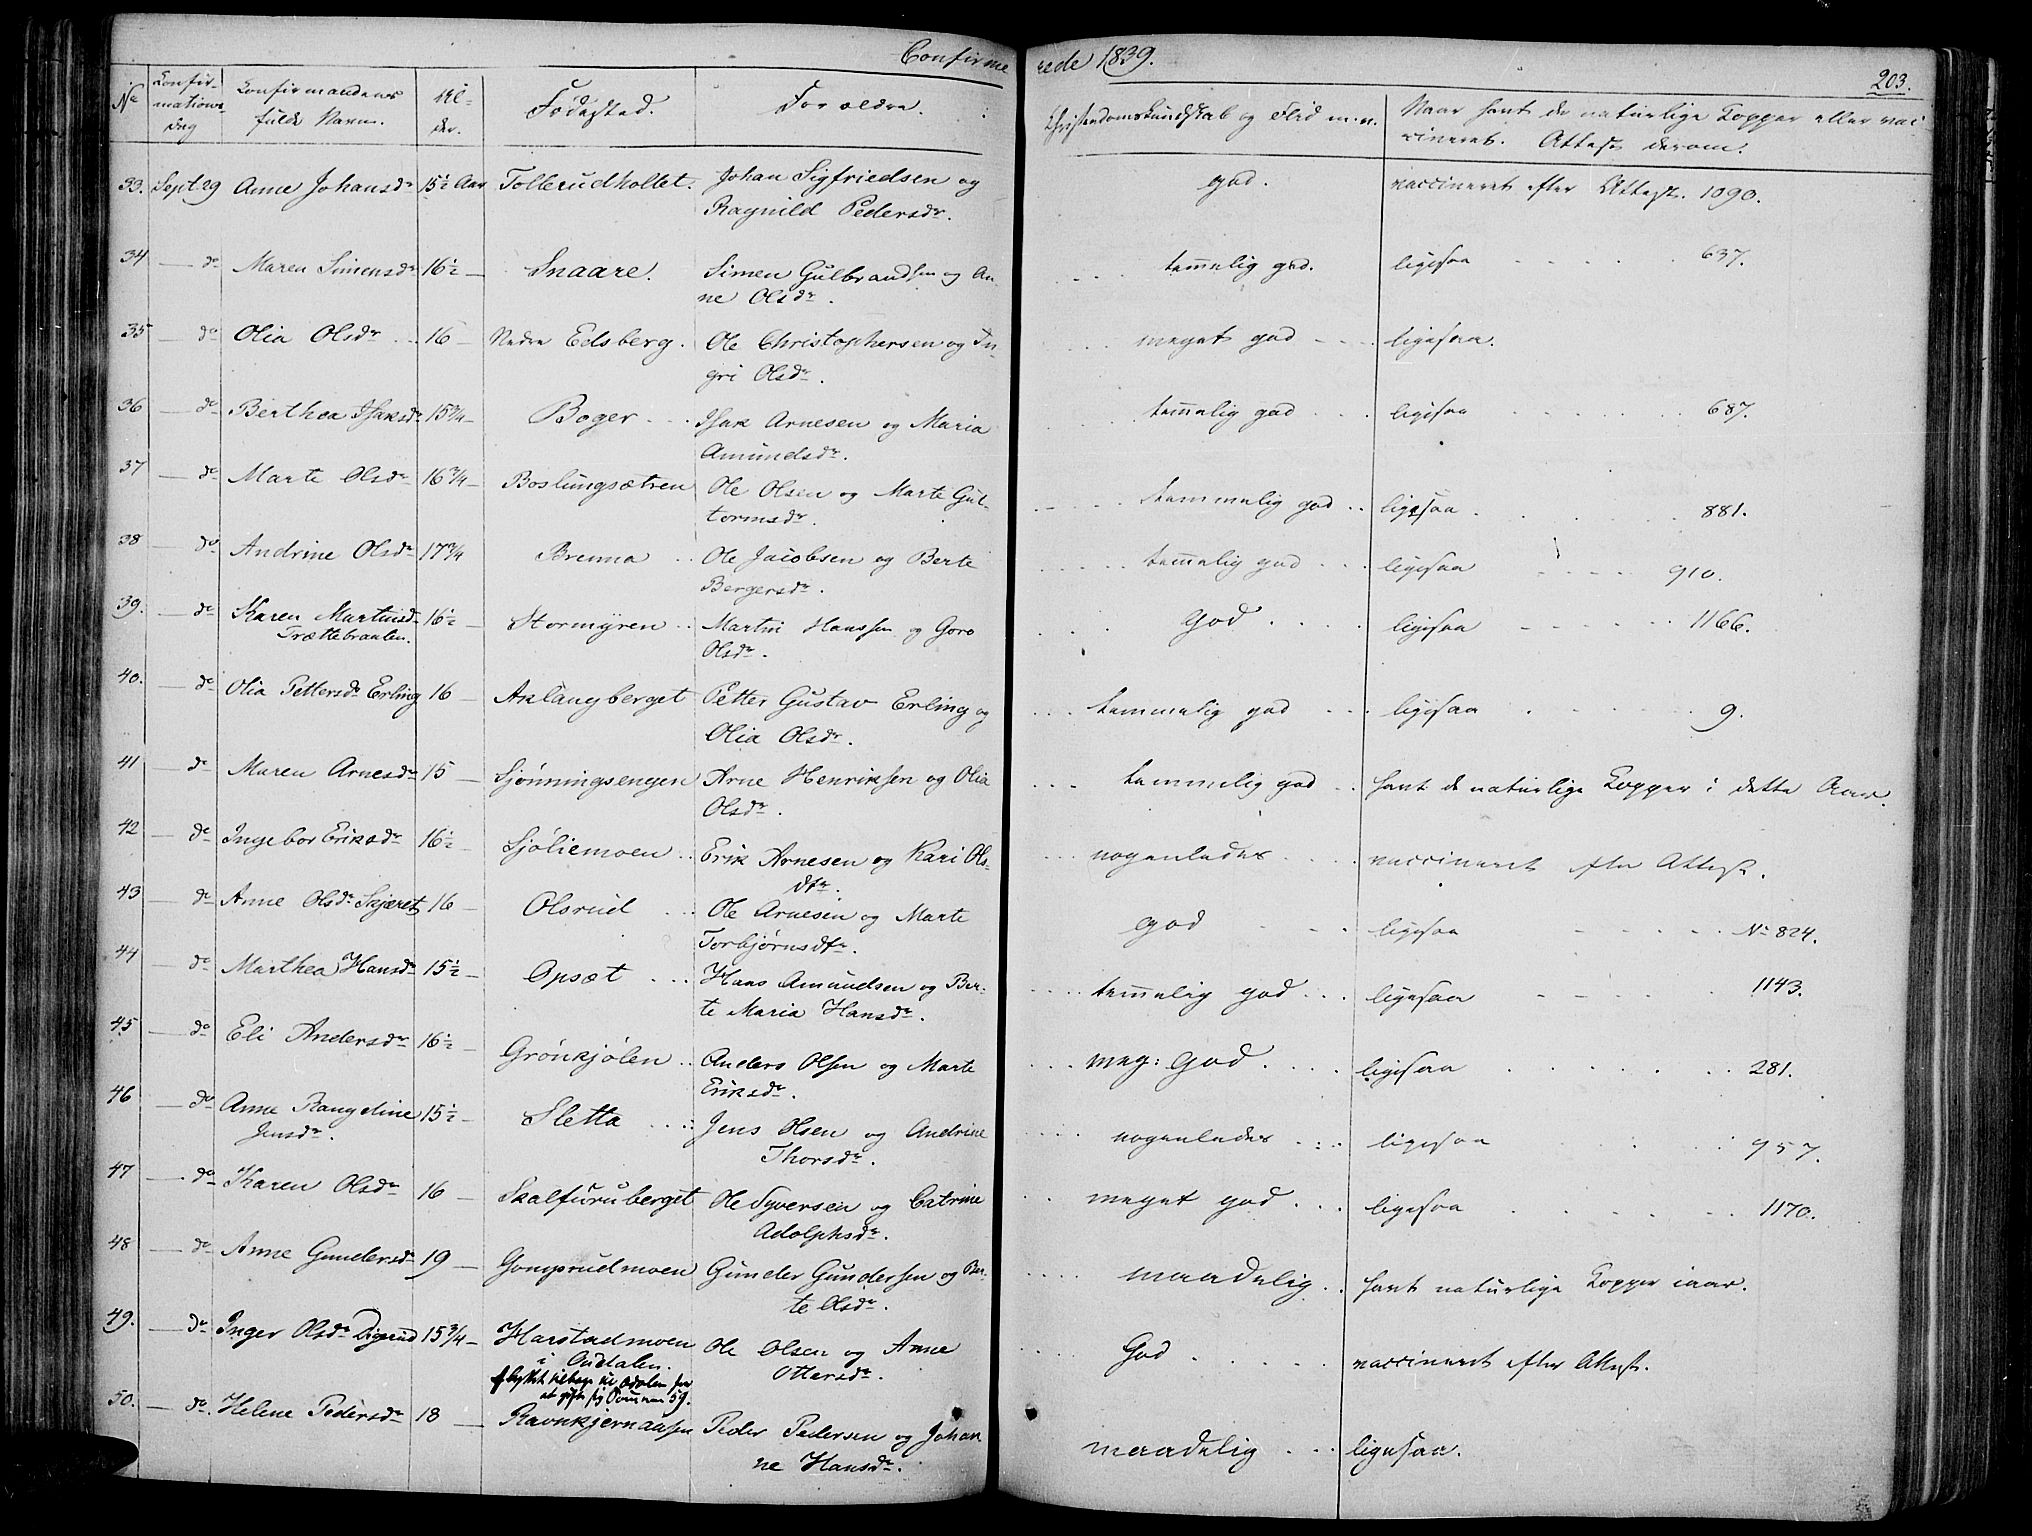 Confirmerede 1839.
203.
No Confirmations dag Confirmandens fulde Navn. Alder. Fødested. Forældre. Christendomskundskab og Flid m.m. Naar havt de naturlige Kopper eller vaccineret. Attest derom.
33. Sept. 29 Anne Johansdr 15½ Aar Tollerudholtet. Johan Sigfriedsen og god. vaccineret efter Attest. 1090.
Ragnild Pedersdr.
34 — do Maren Simensdr 16½ — Snaare. Simen Gulbrandsen og An- temelig god. ligesaa 637.
ne Olsdr.
35 — do Olia Olsdr 16 — Nedre Edsberg. Ole Christophersen og In- meget god ligesaa.
gri Olsdr.
36 — do Berthea Isaksdr 15¾ — Boger Isak Arnesen og Maria temelig god ligesaa 687.
Amundsdr.
37 — do Marte Olsdr 16¾ — Boslungsætren Ole Olsen og Marte Gul- temmelig god ligesaa 881.
tormsdr.
38 — do Andrine Olsdr 17¾ Brenna Ole Jacobsen og Berte temelig god ligesaa 910.
Bergersdr.
39. — do Karen Martinsd. 16½ — Stormyren Martin Hanssen og Goro God ligesaa 1166.
Trættebraaten. Olsdr.
40. — do Olia Pettersdr Erling 16 — Aslangberget Petter Gustav Erling og temmelig god ligesaa 9.
Olia Olsdr.
41 — do Maren Arnesdr 15 — Sjønningsengen Arne Henriksen og Olia temmelig god havt de naturlige Kopper i dette Aar.
Olsdr.
42 — do Ingebor Eriksdr 16½ Sjøliemoen Erik Arnesen og Kari Ols- nogenledes vaccineret efter Attest.
dtr.
43 — do Anne Olsdr Skjæret 16 — Olsrud Ole Arnesen og Marte god ligesaa No 824.
Torbjørnsdtr.
44 — do Marthea Hansdr 15½ — Opsæt Hans Amundsen og Ber- temelig god ligesaa 1143.
te Maria Hansdr.
45 — do Eli Andersdr 16½ — Grønkjølen Anders Olsen og Marte meg: God ligesaa 281.
Eriksdr.
46 — do Anne Rangdine 15½ — Sletta Jens Olsen og Andrine nogenledes ligesaa 957.
Jensdr. Thorsdr.
47 — do Karen Olsdr 16 — Skalfuruberget Ole Syversen og Catrine meget god ligesaa 1170.
Adolphsdr.
48 — do Anne Gundersdr 19 — Gomprudmoen Gunder Gundersen og Ber- maadelig havt naturlige Kopper iaar.
te Olsdr.
49. — do Inger Olsdr Digerud 15¾ — Harstadmoen Ole Olsen og Anne God vaccineret efter Attest.
i Oudalen. Ottersdr.
flyttet tilbage til Odalen for
at gifte sig
50. — do. Helene Pedersdr 18 — Ravnkjernaasen Peder Pedersen og Johan maadelig ligesaa.
ne Hansdr.